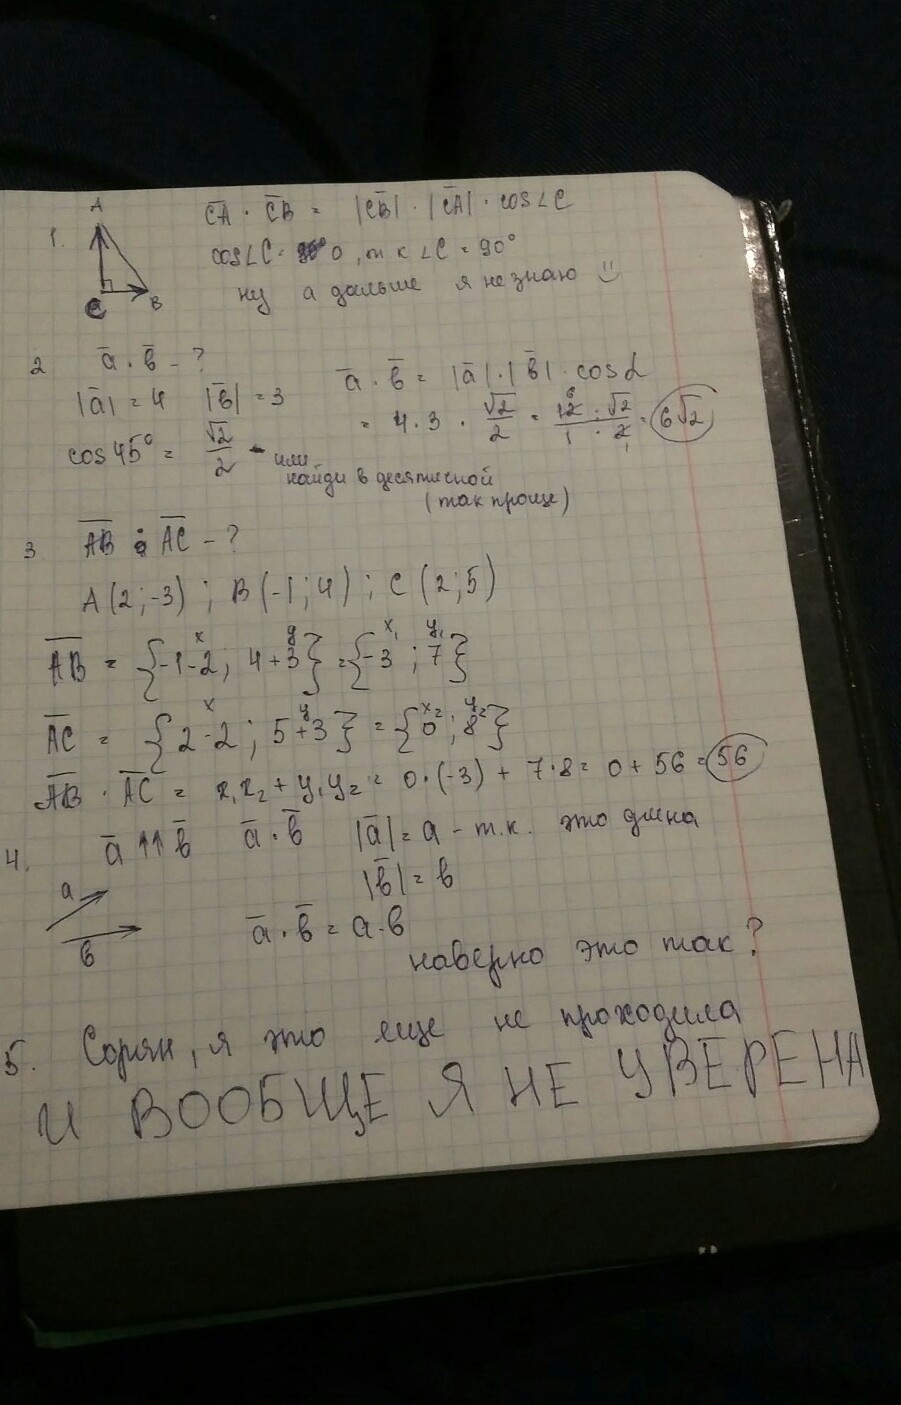 1.
A
C
B
C̅A̅ · C̅B̅ = |C̅B̅| · |C̅A̅| · cos∠C
cos∠C = 0, т к ∠C = 90°
ну а дальше я не знаю
2 a̅ · b̅ - ?
|a̅| = 4 |b̅| = 3
cos 45° = √2/2 - или
найди в десятичной
(так проще)
a̅ · b̅ = |a̅| · |b̅| · cos α
= 4 · 3 · √2/2 = 12 · √2 / 1 · 2 = 6√2
3. A̅B̅ · A̅C̅ - ?
A (2; -3) ; B (-1; 4) ; C (2; 5)
A̅B̅ = {-1-2; 4+3} = {-3; 7}
A̅C̅ = {2-2; 5+3} = {0; 8}
A̅B̅ · A̅C̅ = x₁x₂ + y₁y₂ = 0·(-3) + 7·8 = 0 + 56 = 56
4. a̅ ↑↑ b̅ a̅ · b̅ |a̅| = a - т.к. это длина
|b̅| = b
a
b
a̅ · b̅ = a · b
наверно это так?
5. Сорян, я это еще не проходила
И ВООБЩЕ Я НЕ УВЕРЕНА